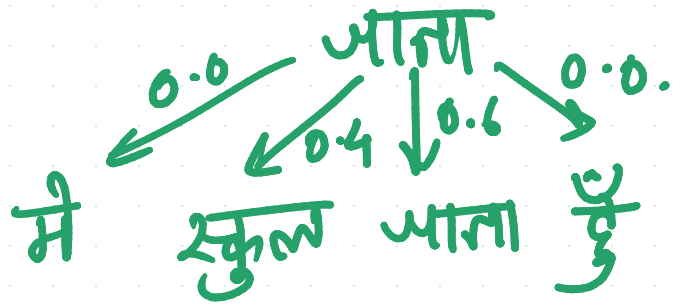 जाना
0.0 0.4 0.6 0.0.
मे स्कुल जाना हूँ